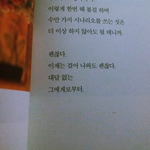 이렇게 한번 해 볼걸 하며
수만 가지 시나리오를 쓰는 짓은
더 이상 하지 않아도 될 테니까.
괜찮다.
이제는 잠이 나와도 괜찮다.
대답 없는
그에게로부터.